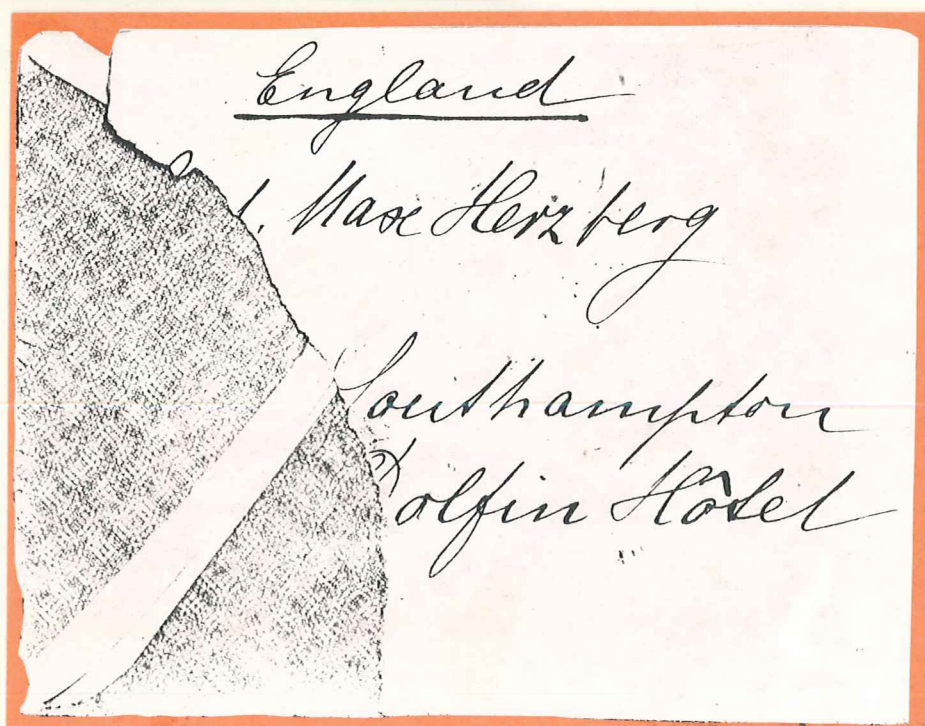 England
Max Herzberg
Southampton
Dolfin Hôtel